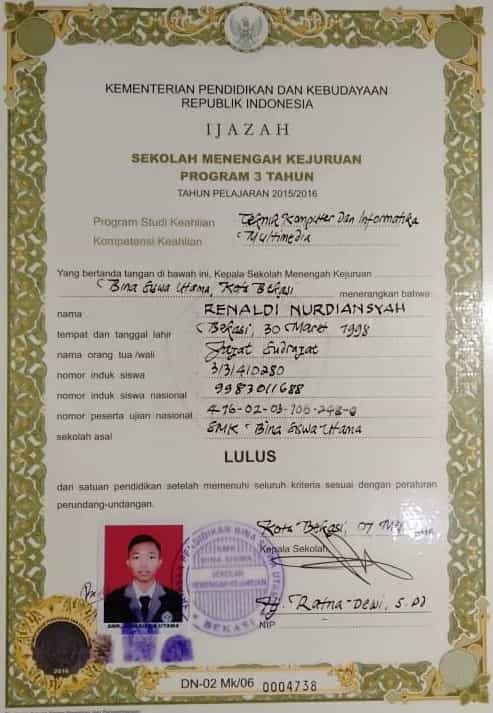 KEMENTERIAN PENDIDIKAN DAN KEBUDAYAAN
REPUBLIK INDONESIA
IJAZAH
SEKOLAH MENENGAH KEJURUAN
PROGRAM 3 TAHUN
TAHUN PELAJARAN 2015/2016
Program Studi Keahlian Teknik Komputer Dan Informatika
Kompetensi Keahlian Multimedia
Yang bertanda tangan di bawah ini, Kepala Sekolah Menengah Kejuruan
Bina Siswa Utama, Kota Bekasi menerangkan bahwa
nama RENALDI NURDIANSYAH
tempat dan tanggal lahir Bekasi, 30 Maret 1998
nama orang tua/wali Sudrajat
nomor induk siswa 3131410280
nomor induk siswa nasional 9983011688
nomor peserta ujian nasional 4-16-02-03-706-248-
sekolah asal SMK Bina Siswa Utama
LULUS
dari satuan pendidikan setelah memenuhi seluruh kriteria sesuai dengan peraturan
perundang-undangan.
Kota Bekasi, 07
Kepala Sekolah
BINA SISWA
SEKOLAH
MENENGAH KEJURUAN
BEKASI
Hj. Ratna Dewi, S.Pd
NIP
2016
DN-02 Mk/06 0004738